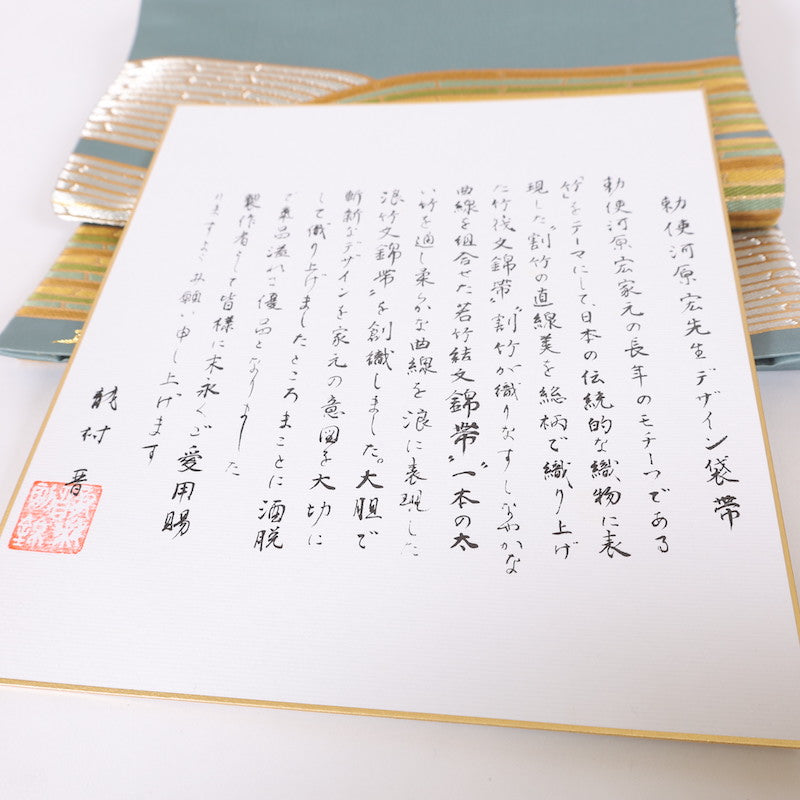 勅使河原宏先生デザイン袋帯
勅使河原宏家元の長年のモチーフである
「竹」をテーマにして、日本の伝統的な織物に表
現した"割竹の直線美を総柄で織り上げ
た竹筏文錦帯""割竹が織りなすしなやかな
曲線を組合せた若竹結文錦帯""一本の太
い竹を通し柔らかな曲線を浪に表現した
浪竹文錦帯"を創織しました。大胆で
斬新なデザインを家元の意図を大切に
して織り上げましたところまことに洒脱
で気品溢れる優品となりました
製作者として皆様に末永くご愛用賜
りますようお願い申し上げます
龍村 晋